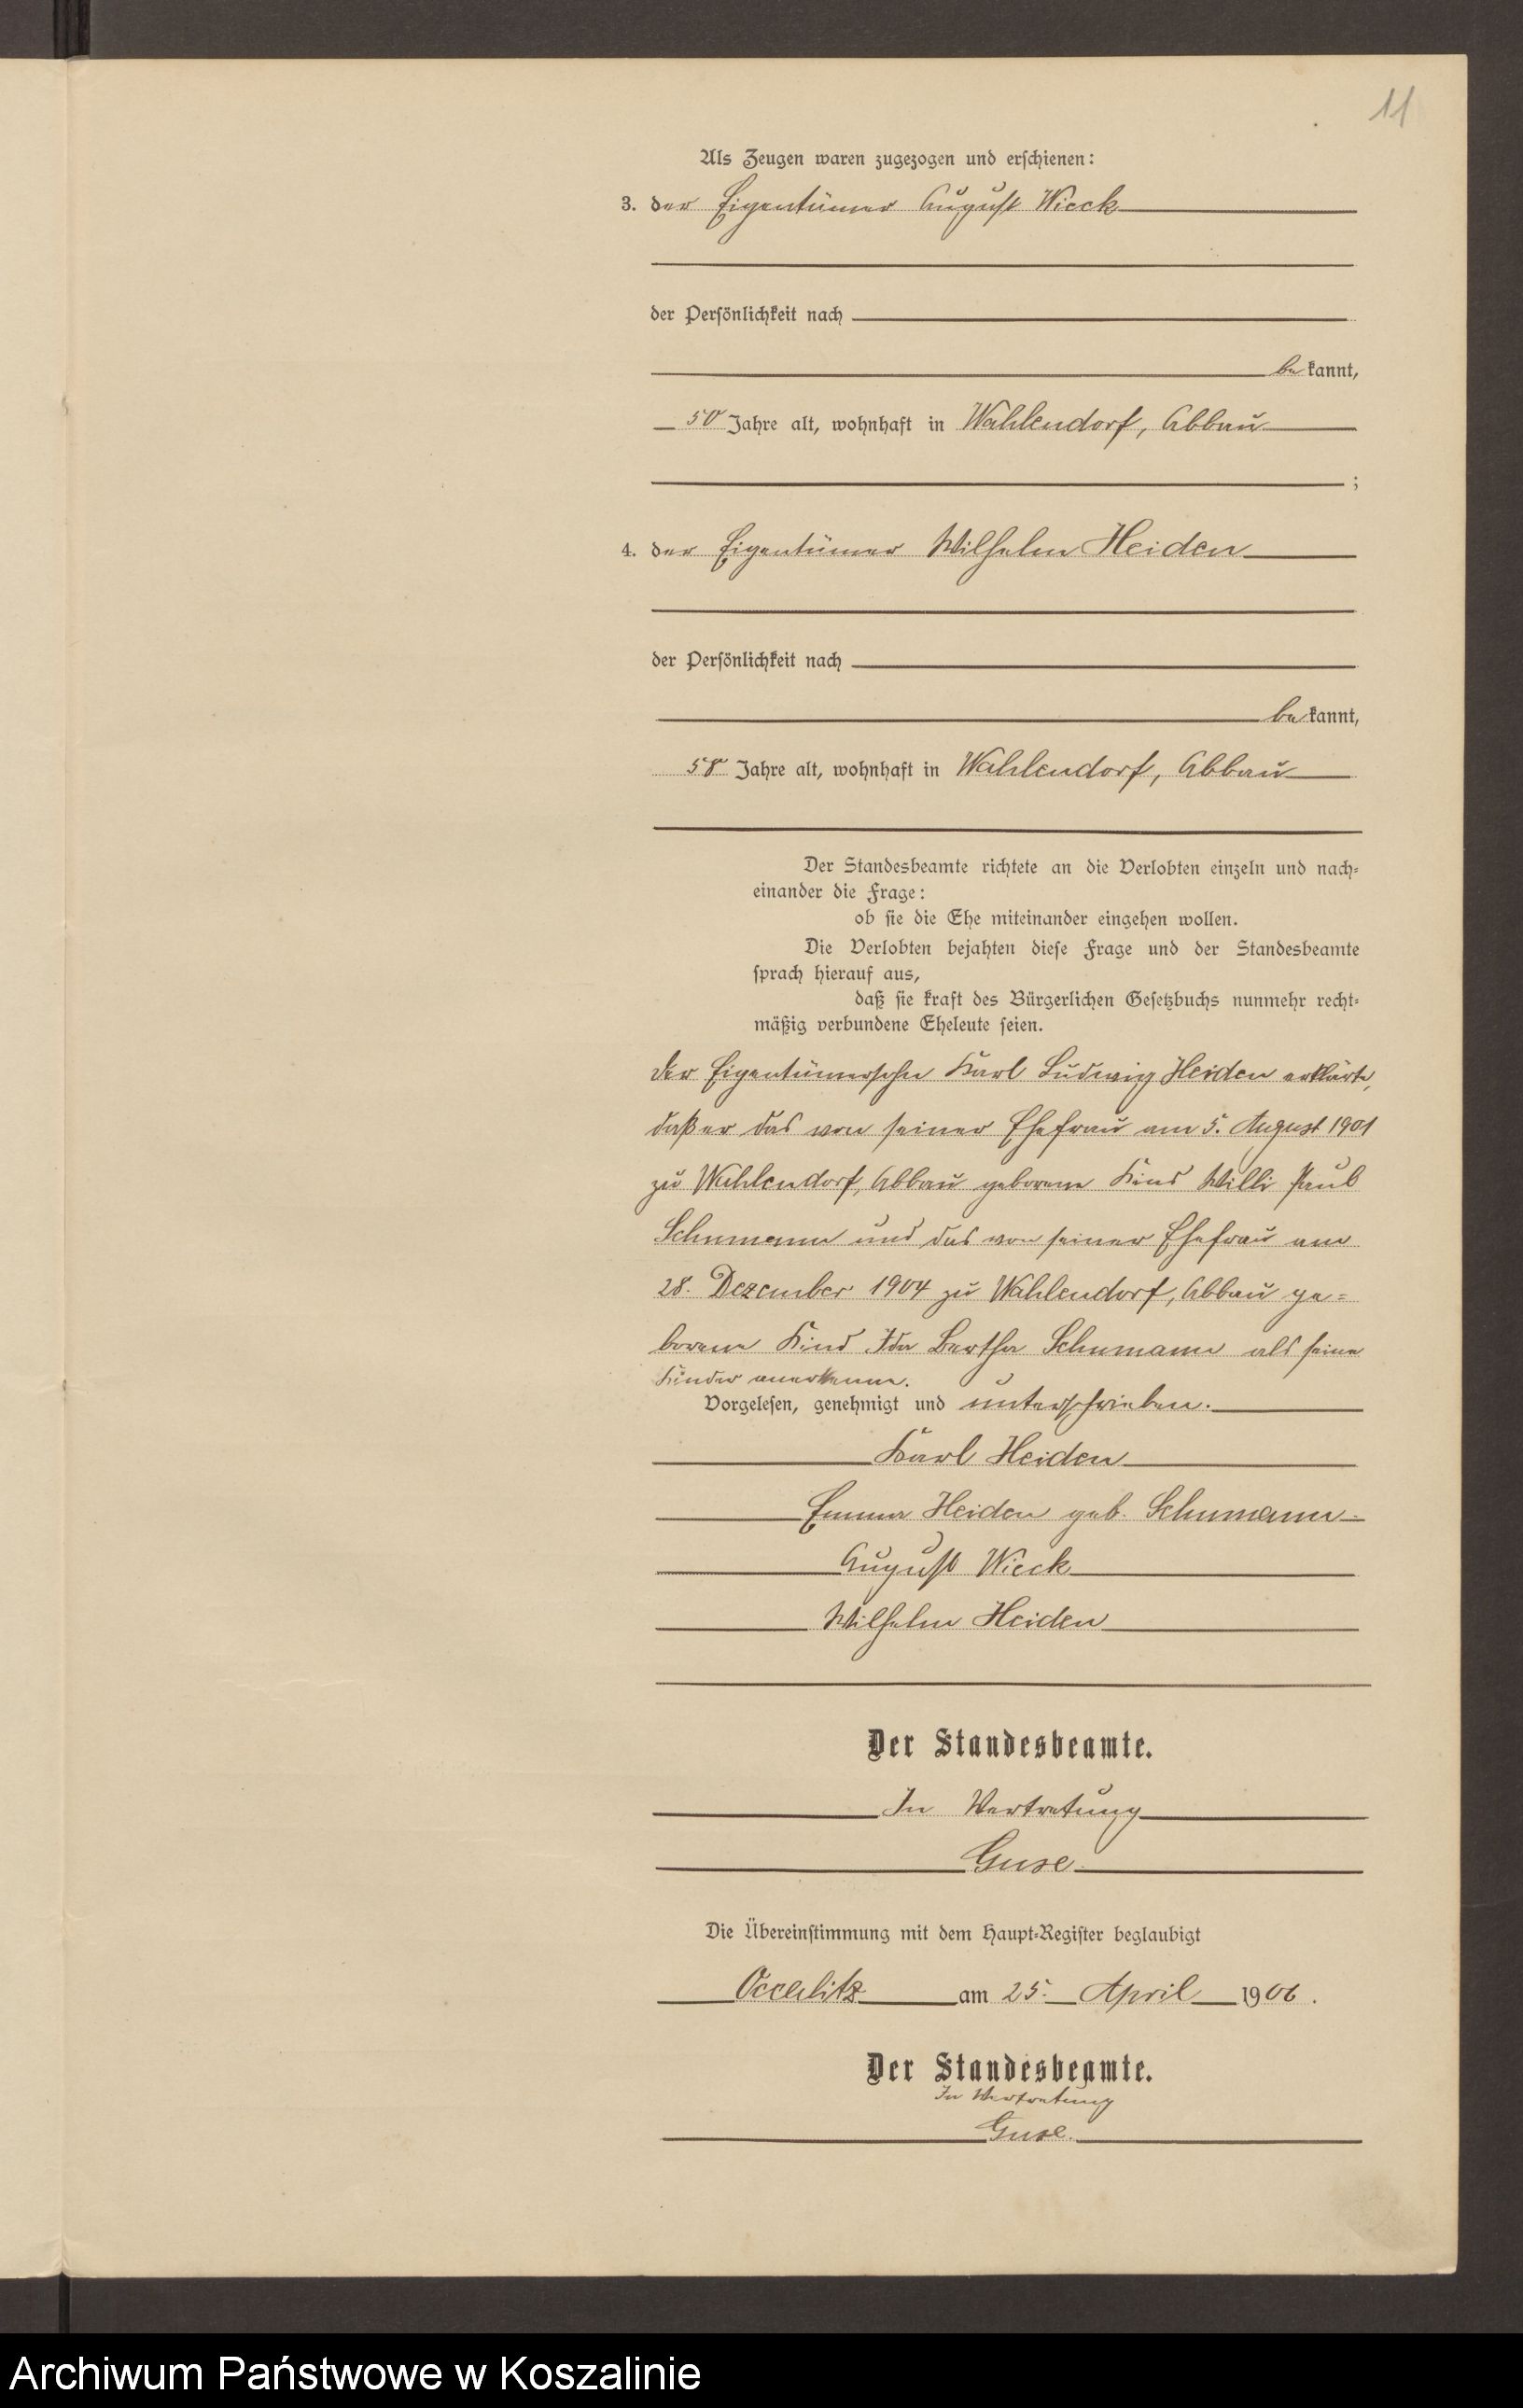 11
Als Zeugen waren zugezogen und erschienen:
3. der Eigentümer August Wieck
der Persönlichkeit nach
bekannt,
50 Jahre alt, wohnhaft in Wahlendorf, Abbau
;
4. der Eigentümer Wilhelm Heiden
der Persönlichkeit nach
bekannt,
58 Jahre alt, wohnhaft in Wahlendorf, Abbau
Der Standesbeamte richtete an die Verlobten einzeln und nach-
einander die Frage:
ob sie die Ehe miteinander eingehen wollen.
Die Verlobten bejahten diese Frage und der Standesbeamte
sprach hierauf aus,
daß sie kraft des Bürgerlichen Gesetzbuchs nunmehr recht-
mäßig verbundene Eheleute seien.
Der Eigentümersohn Karl Ludwig Heiden erklärte,
daß er das von seiner Ehefrau am 5. August 1901
zu Wahlendorf, Abbau geborene Kind Willi Paul
Schumann und das von seiner Ehefrau am
28. Dezember 1904 zu Wahlendorf, Abbau ge-
borene Kind Ida Bertha Schumann als seine
Kinder anerkenne.
Vorgelesen, genehmigt und unterschrieben.
Karl Heiden
Emma Heiden geb. Schumann
August Wieck
Wilhelm Heiden
Der Standesbeamte.
In Vertretung
Guse.
Die Übereinstimmung mit dem Haupt-Register beglaubigt
am 25. April 1906.
Der Standesbeamte.
In Vertretung
Guse.
Archiwum Państwowe w Koszalinie